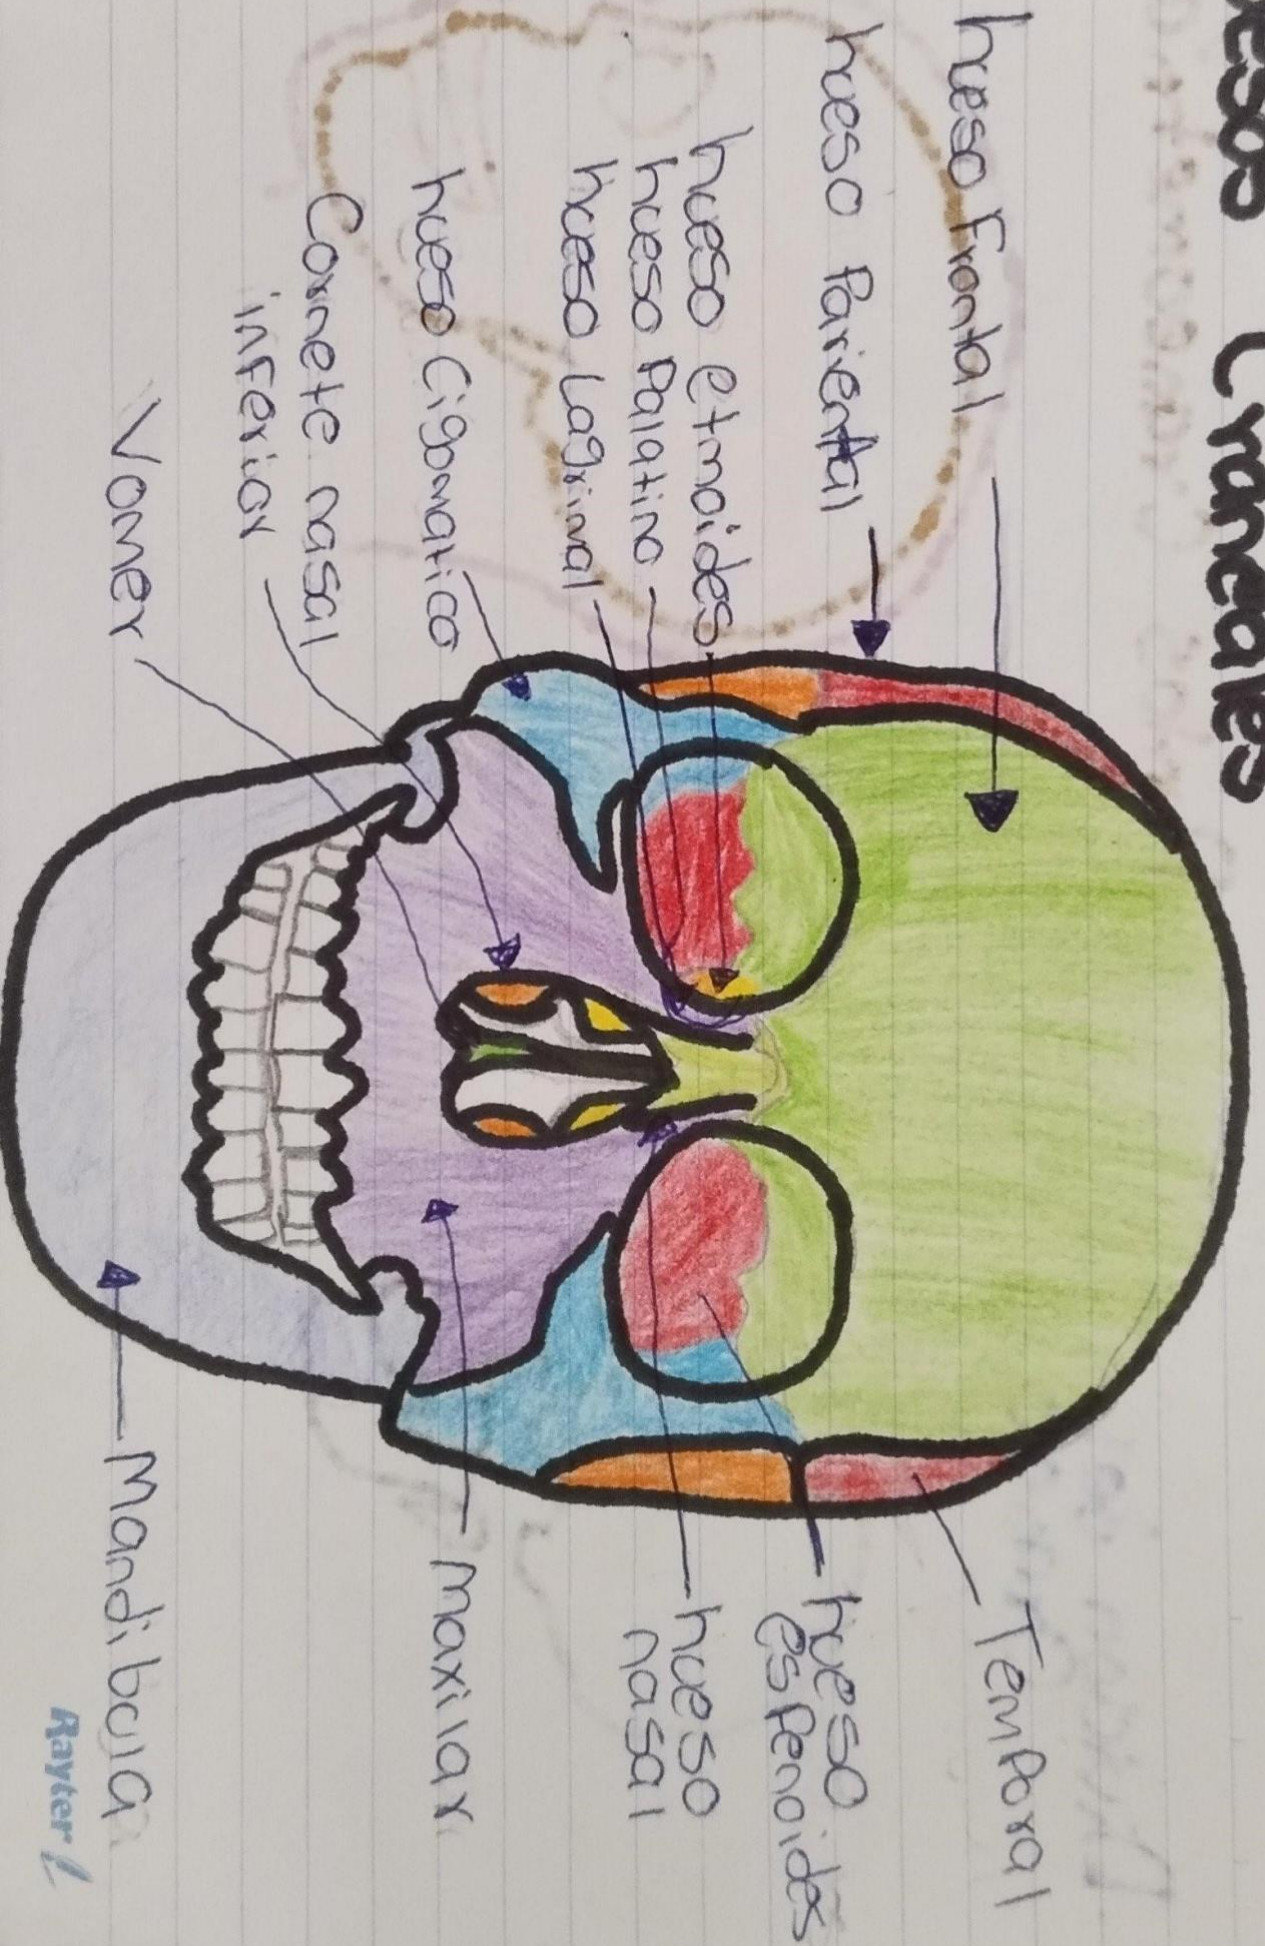 Craneales
hueso Frontal
hueso Pariental
hueso etmoides
hueso Palatino
hueso Lagrimal
hueso Cigomatico
Cornete nasal
inferior
Vomer
Temporal
hueso
esfenoides
hueso
nasal
maxilar
Mandibula
Rayter